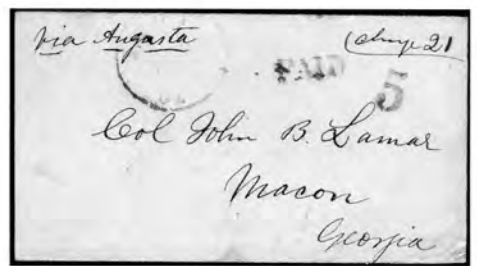 via Augusta
Charge 21
PAID
5
Col John B. Lamar
Macon
Georgia